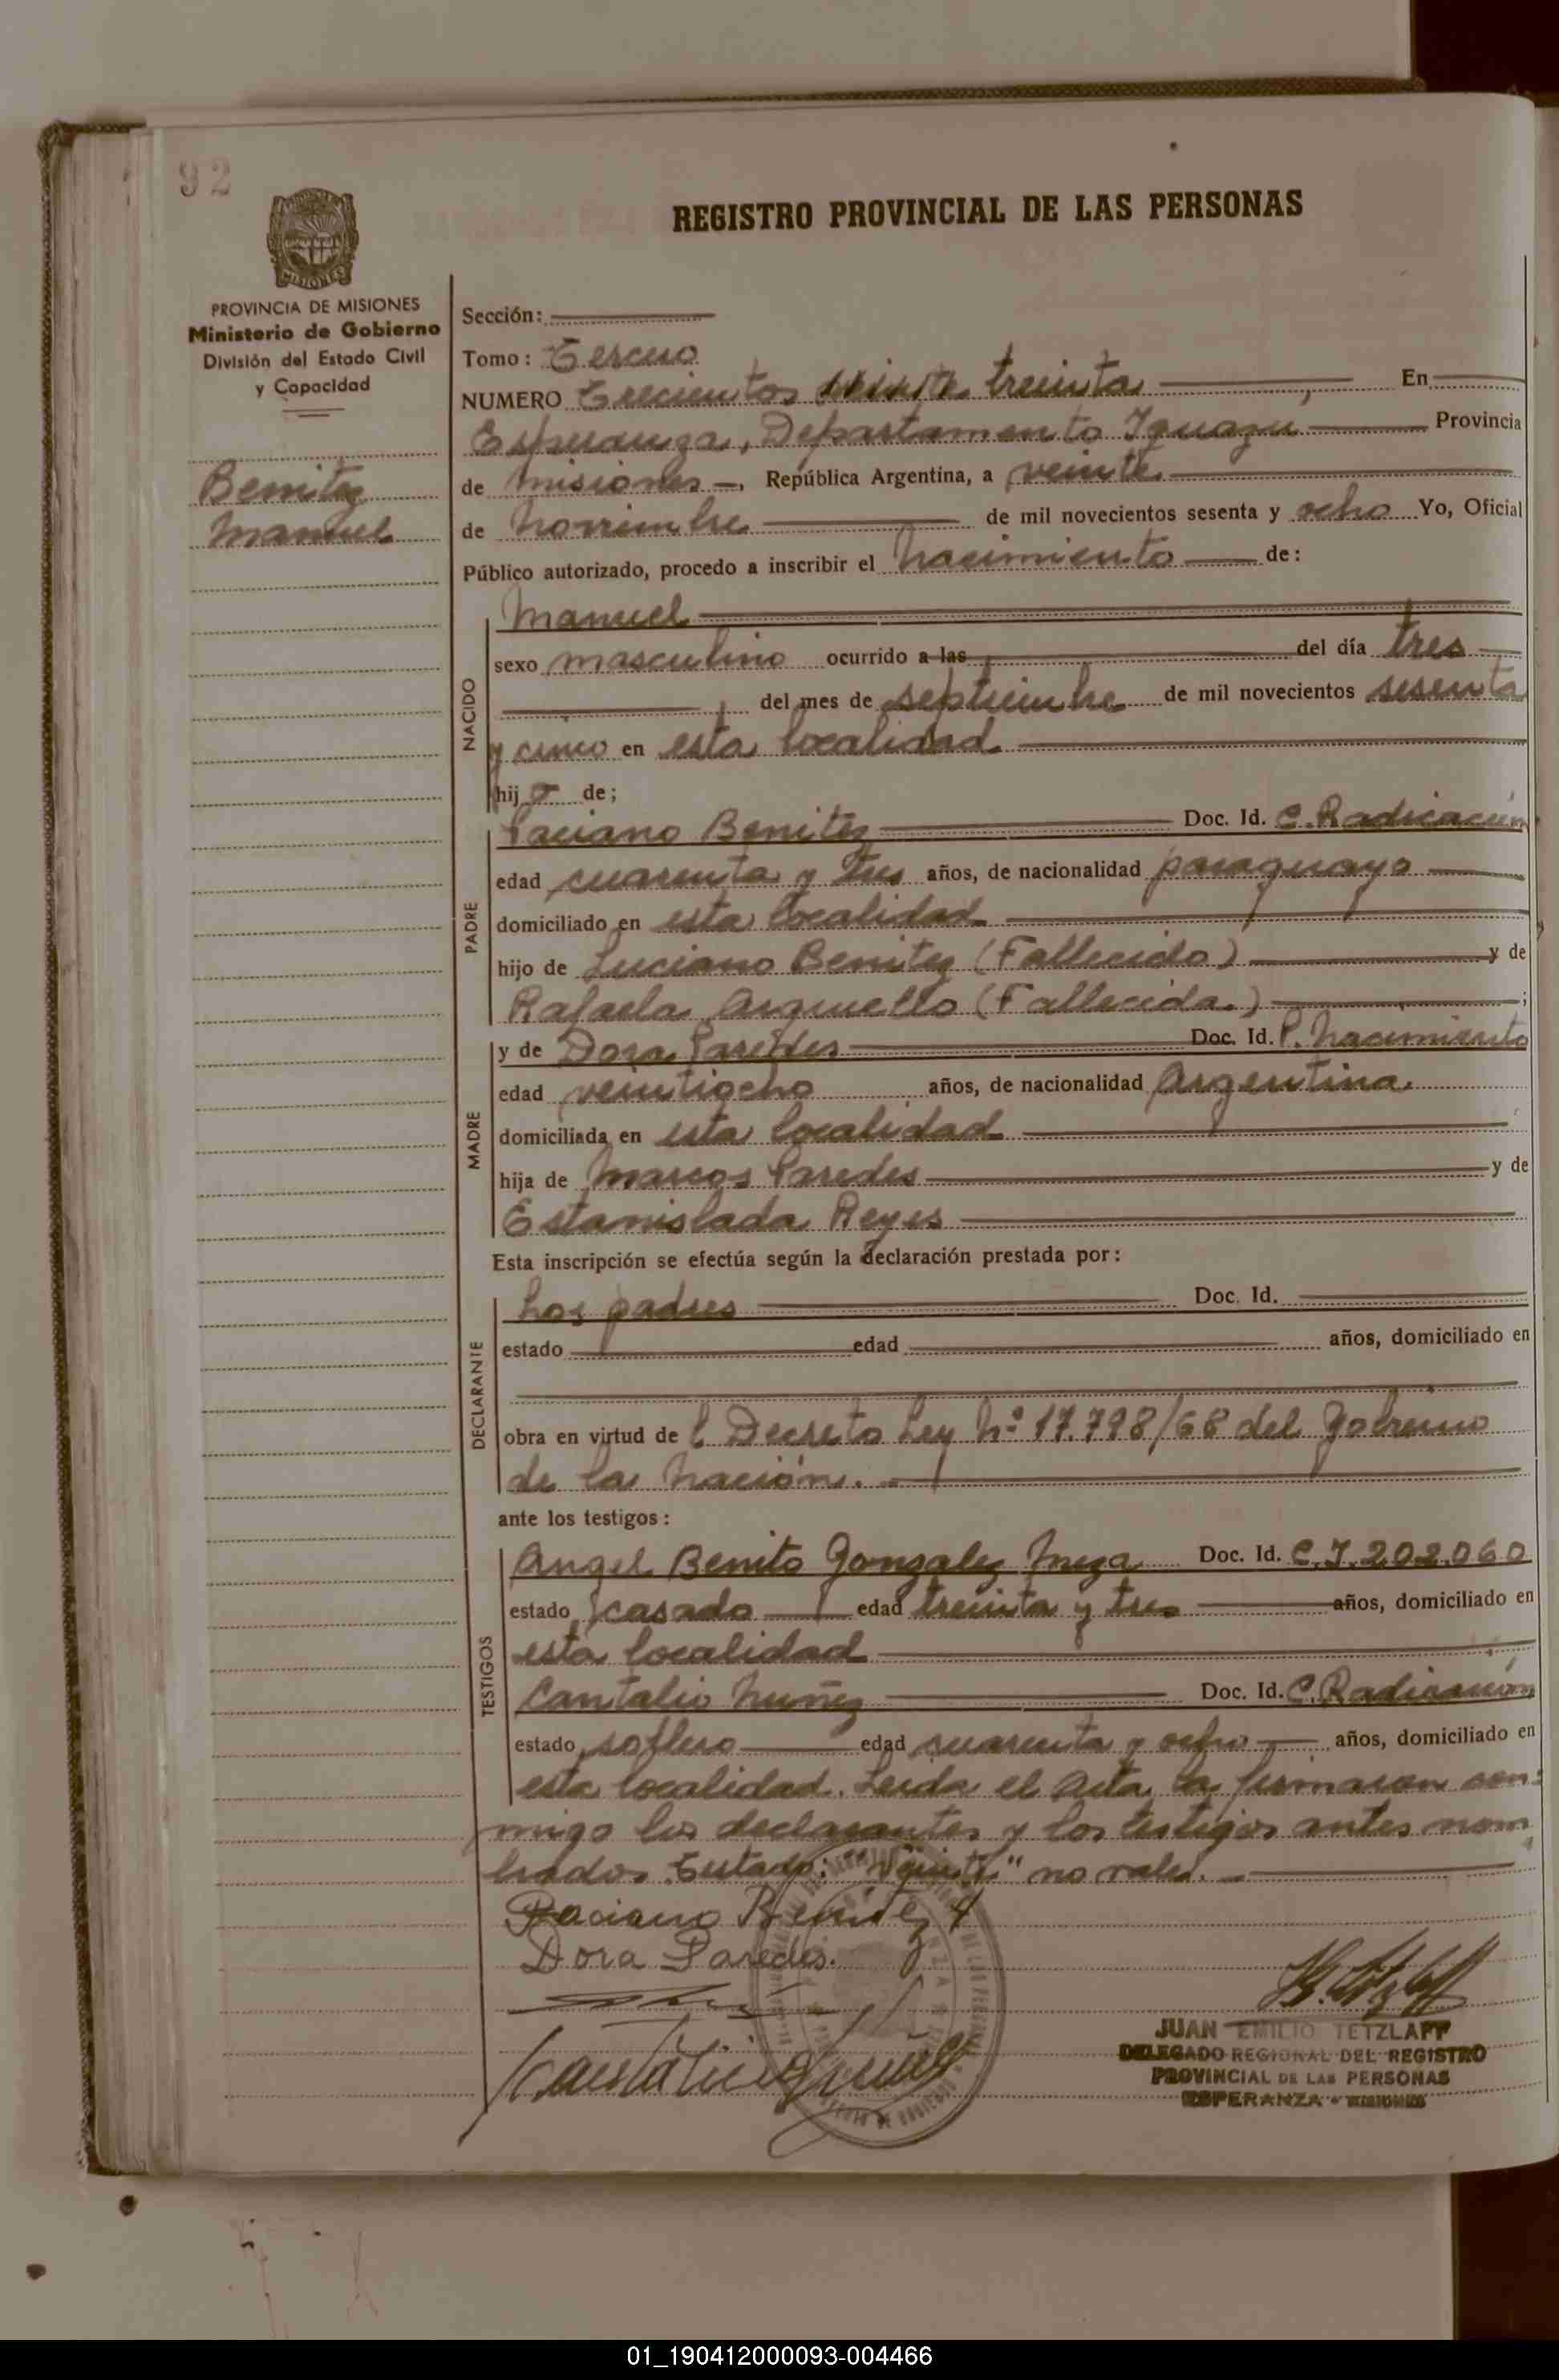 92
REGISTRO PROVINCIAL DE LAS PERSONAS
MISIONES
PROVINCIA DE MISIONES
Ministerio de Gobierno
División del Estado Civil
y Capacidad
Benitez
Manuel
Sección:
Tomo: Tercero
NUMERO Trecientos veinte treinta, En
Esperanza, Departamento Iguazu Provincia
de Misiones —, República Argentina, a veinte
de Noviembre de mil novecientos sesenta y ocho Yo, Oficial
Público autorizado, procedo a inscribir el Nacimiento de:
NACIDO
Manuel
sexo masculino ocurrido a las del día tres
del mes de septiembre de mil novecientos sesenta
y cinco en esta localidad
hijo de;
PADRE
Paciano Benitez Doc. Id. C. Radicación
edad cuarenta y tres años, de nacionalidad paraguayo
domiciliado en esta localidad
hijo de Luciano Benitez (Fallecido) y de
Rafaela Arguello (Fallecida) ;
MADRE
y de Dora Paredes Doc. Id. P. Nacimiento
edad veintiocho años, de nacionalidad Argentina
domiciliada en esta localidad
hija de Marcos Paredes y de
Estanislada Reyes
Esta inscripción se efectúa según la declaración prestada por:
DECLARANTE
Los padres Doc. Id.
estado edad años, domiciliado en
obra en virtud del Decreto Ley Nº 17.798/68 del Gobierno
de la Nación.
ante los testigos:
TESTIGOS
Angel Benito Gonzalez Meza Doc. Id. C.I. 202.060
estado casado edad treinta y tres años, domiciliado en
esta localidad
Cantalio Nuñez Doc. Id. C. Radicación
estado soltero edad cuarenta y ocho años, domiciliado en
esta localidad. Leida el Acta, la firmaron con=
migo los declarantes y los testigos antes nom
brados. Testado: "Veinte" no vale.
Paciano Benitez
Dora Paredes.
Cantalicio Nuñez
JUAN EMILIO TETZLAFF
DELEGADO REGIONAL DEL REGISTRO
PROVINCIAL DE LAS PERSONAS
ESPERANZA - MISIONES
01_190412000093-004466